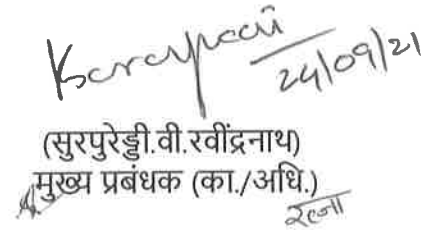 24/09/21
(सुरपुरेड्डी.वी.रवींद्रनाथ)
मुख्य प्रबंधक (का./अधि.)